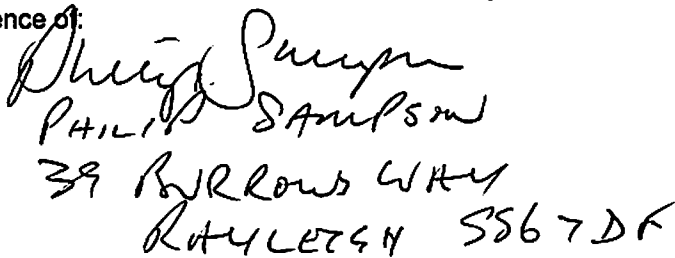 ence of:
Philip Sampson
PHILIP SAMPSON
39 BURROWS WAY
RAYLEIGH SS6 7DF